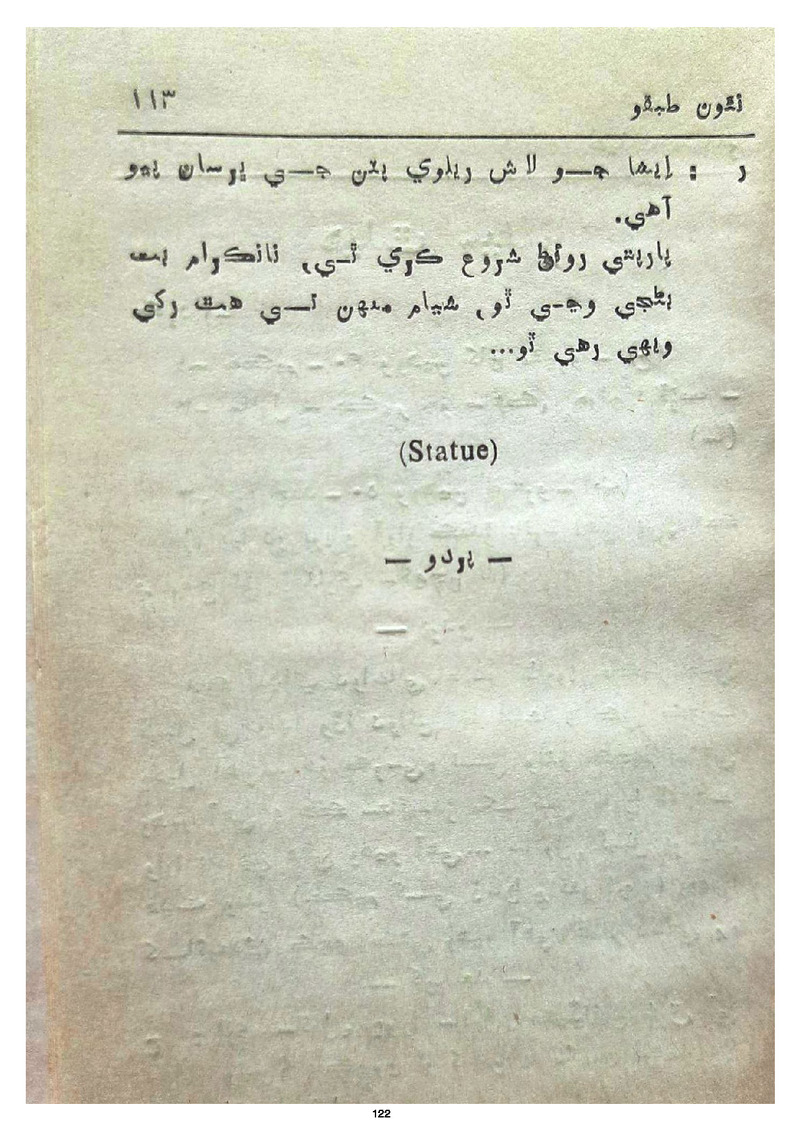 نئون طبقو ۱۱۳
ر : ايشا جو لاش ريلوي پٽن جي ڀرسان پيو
آهي.
پاربتي روئڻ شروع ڪري ٿي، نانڪرام بت
بڻجي وڃي ٿو، شيام منهن تي هٿ رکي
ويهي رهي ٿو...
(Statue)
— پردو —
122